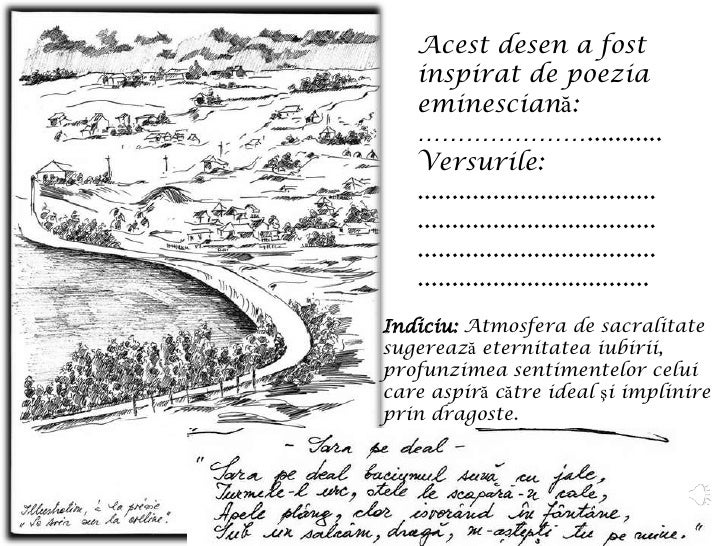 Acest desen a fost
inspirat de poezia
eminesciană:
…………………...........
Versurile:
..................................
..................................
..................................
.................................
Indiciu: Atmosfera de sacralitate
sugerează eternitatea iubirii,
profunzimea sentimentelor celui
care aspiră către ideal și implinire
prin dragoste.
- Sara pe deal -
"Sara pe deal buciumul sună cu jale,
Turmele-l urc, stele le scapără-n cale,
Apele plâng, clar isvorând în fântâne,
Sub un salcâm, dragă, m-aștepți tu pe mine."
Illustration, à la poésie
"Le soir sur la colline".